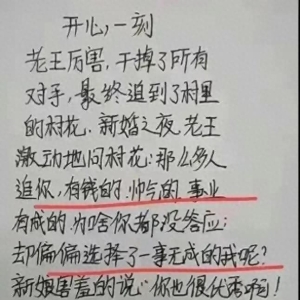 开心一刻
老王厉害,干掉了所有
对手,最终追到了村里
的村花.新婚之夜,老王
激动地问村花:那么多人
追你,有钱的.帅气的.事业
有成的.为啥你都没答应;
却偏偏选择了一事无成的我呢?
新娘害羞的说:"你也很优秀啊!